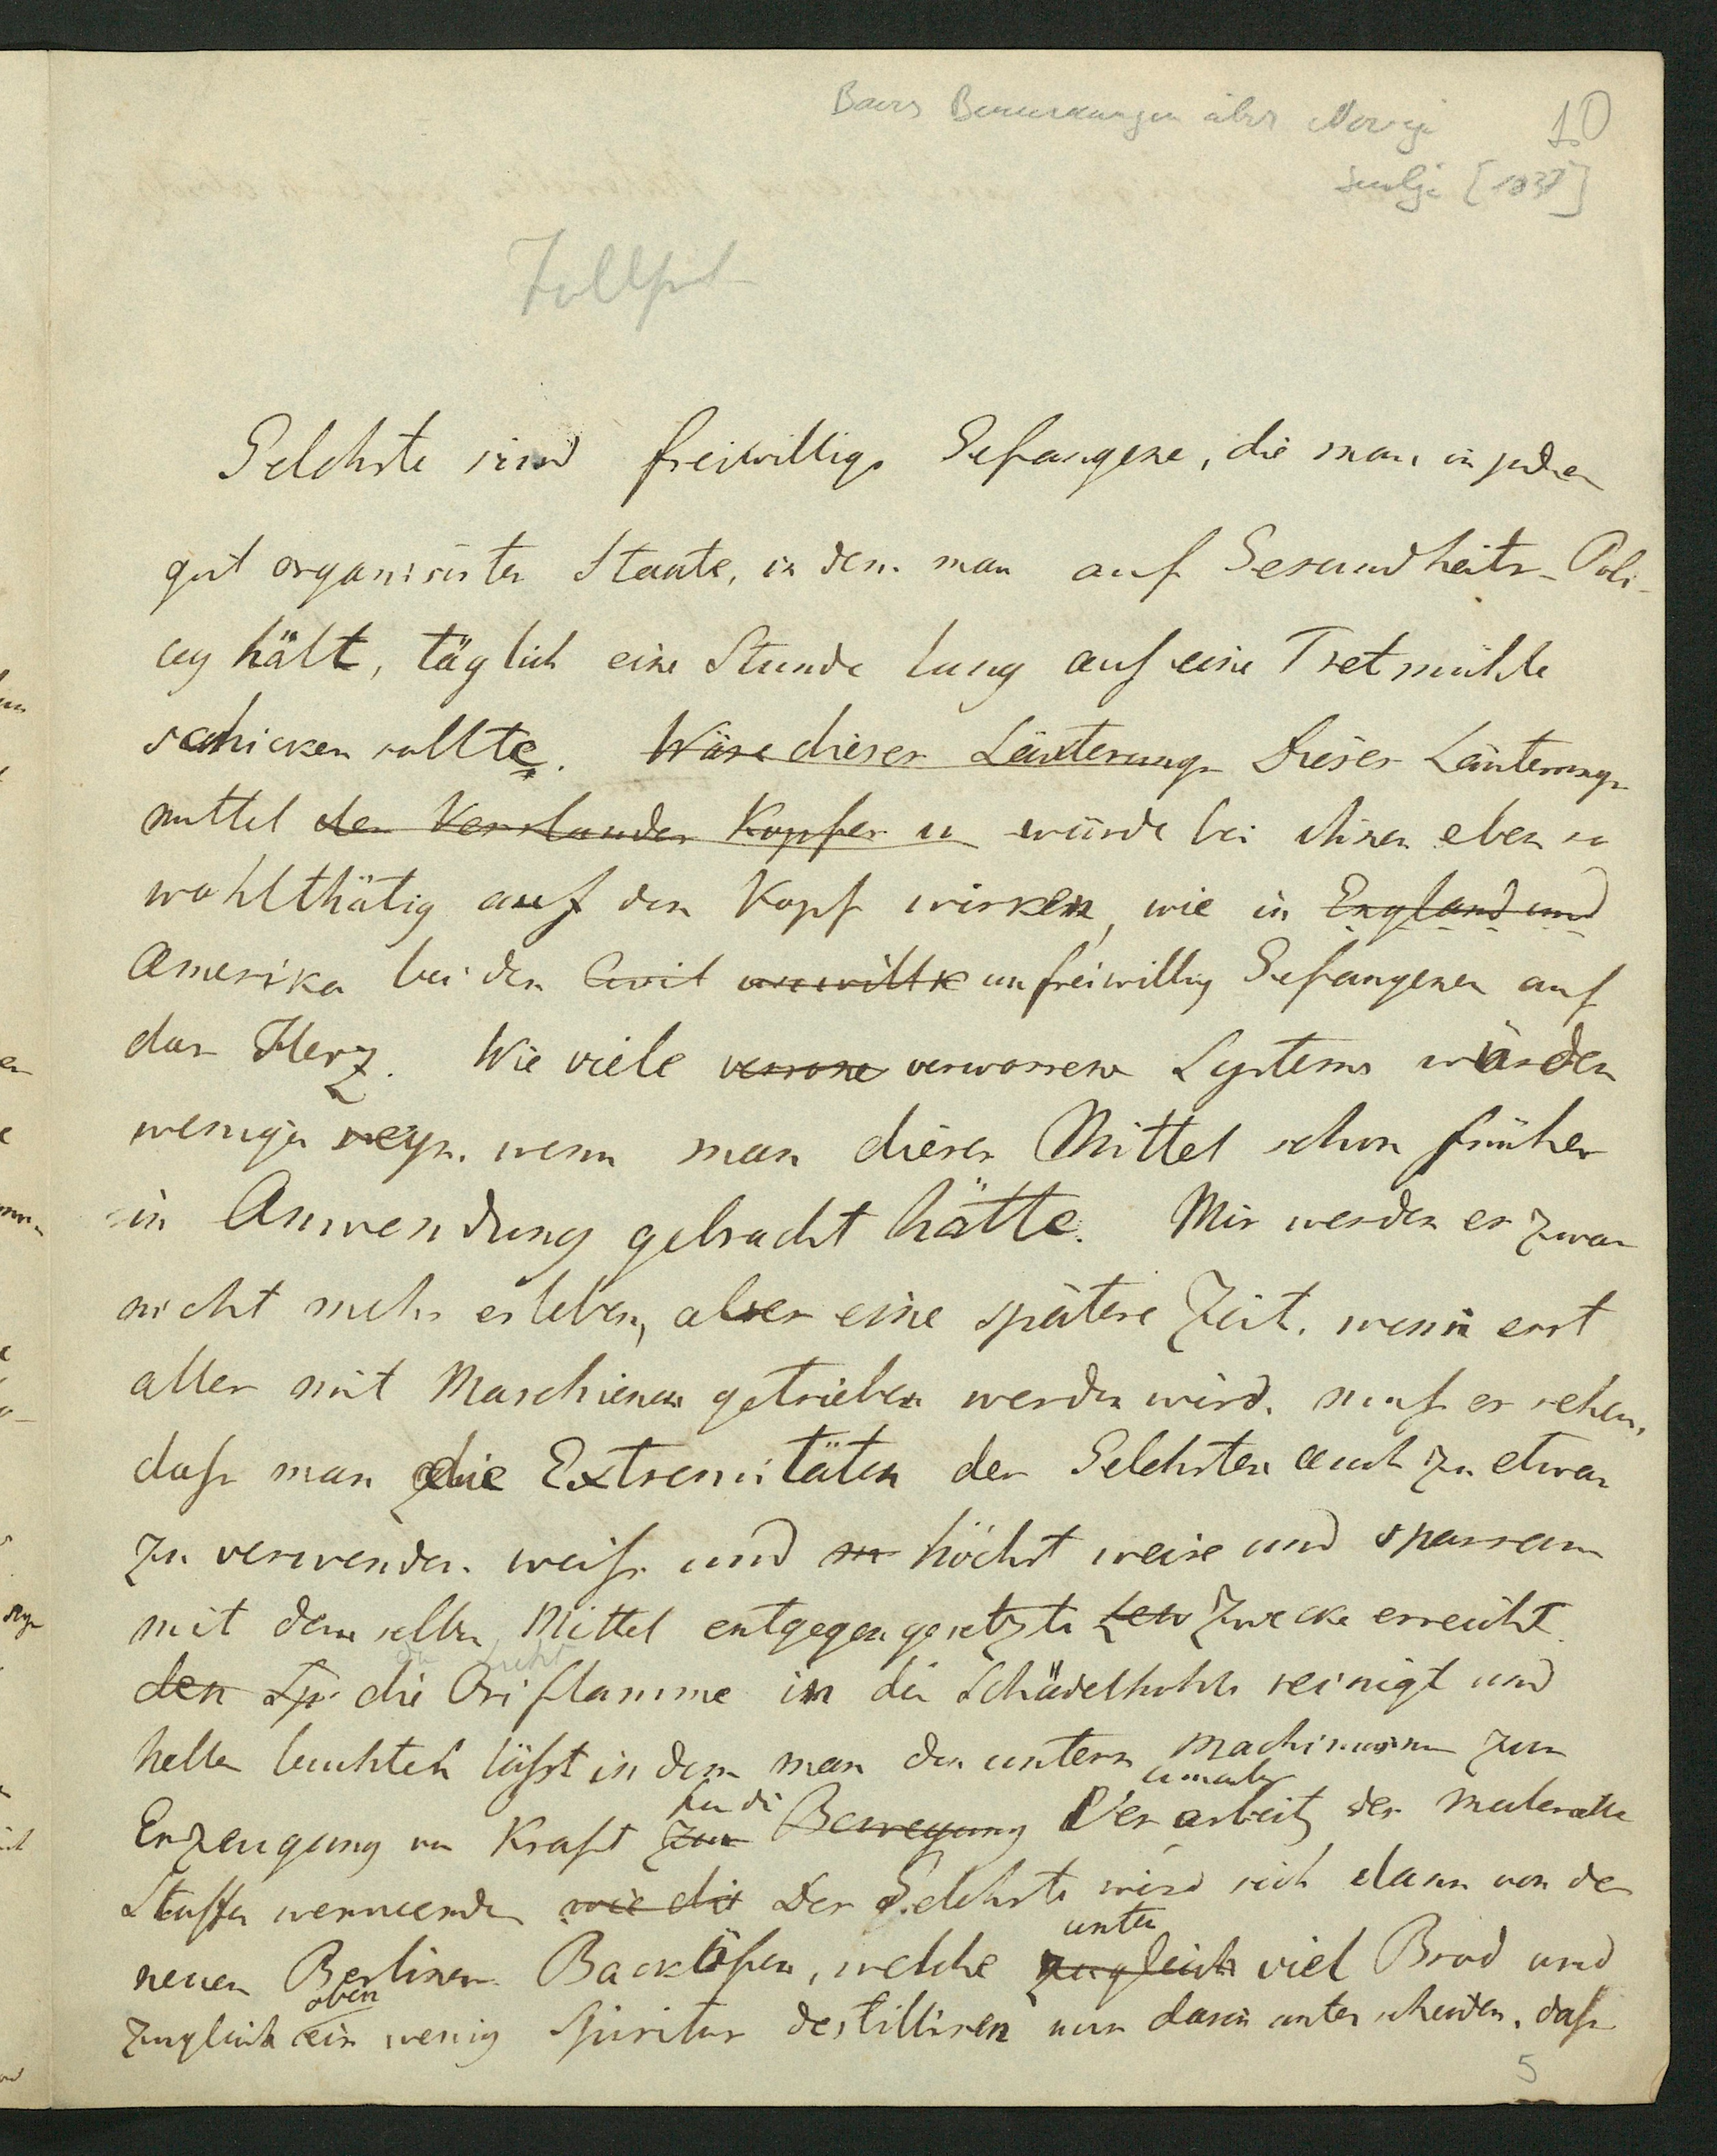 Baers Bemerkungen über Novaja 10
Semlja [1837]
Gelehrte sind freiwillige Gefangene, die man in jedem
gut organisirten Staate, in dem man auf Gesundheits-Poli-
cey hält, täglich eine Stunde lang auf eine Tretmühle
schicken sollte. Wäre dieses Läuterungs Dieses Läuterungs
mittel des Verstandes Kopfes u würde bei ihnen eben so
wohlthätig auf den Kopf wirken, wie in England und
Amerika bei den Civil unwillk unfreiwillig Gefangenen auf
das Herz. Wie viele verworrene Systeme würden
weniger seyn, wenn man dieses Mittel schon früher
in Anwendung gebracht hätte. Wir werden es zwar
nicht mehr erleben, aber eine spätere Zeit, wenn erst
alles mit Maschienen getrieben werden wird, muß es sehen,
daß man die Extremitäten der Gelehrten auch zu etwas
zu verwenden weiß und höchst weise und sparsam
mit demselben Mittel entgegengesetzte Zwecke erreicht.
den die Oriflamme in der Schädelhöhle reinigt und
heller leuchten läßt in dem man den untern zur
für die
Erzeugung von Kraft zur Bewegung Verarbeitg der materielle
Stoffe verwendet wie die Der Gelehrte wird sich dann von den
unten
neuen Berliner Backöfen, welche zugleich viel Brod und
oben
zugleich ein wenig Spiritus destilliren nur darin unterscheiden, daß
5